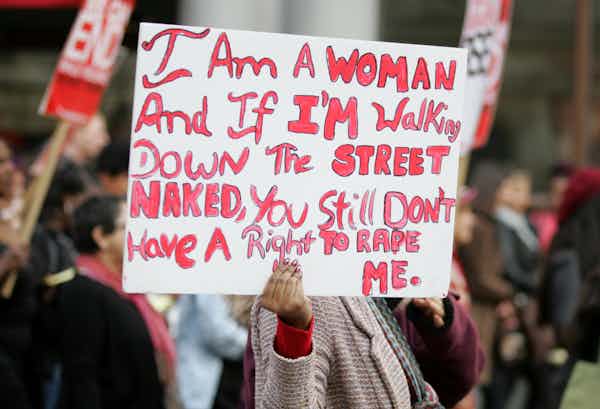 I Am A WOMAN
And If I'M Walking
DOWN The STREET
NAKED, You Still DON'T
Have A Right TO RAPE
ME.